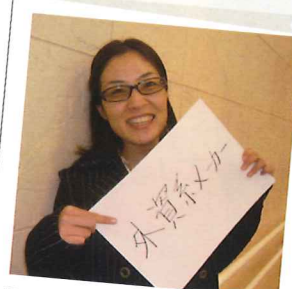 外資系メーカー